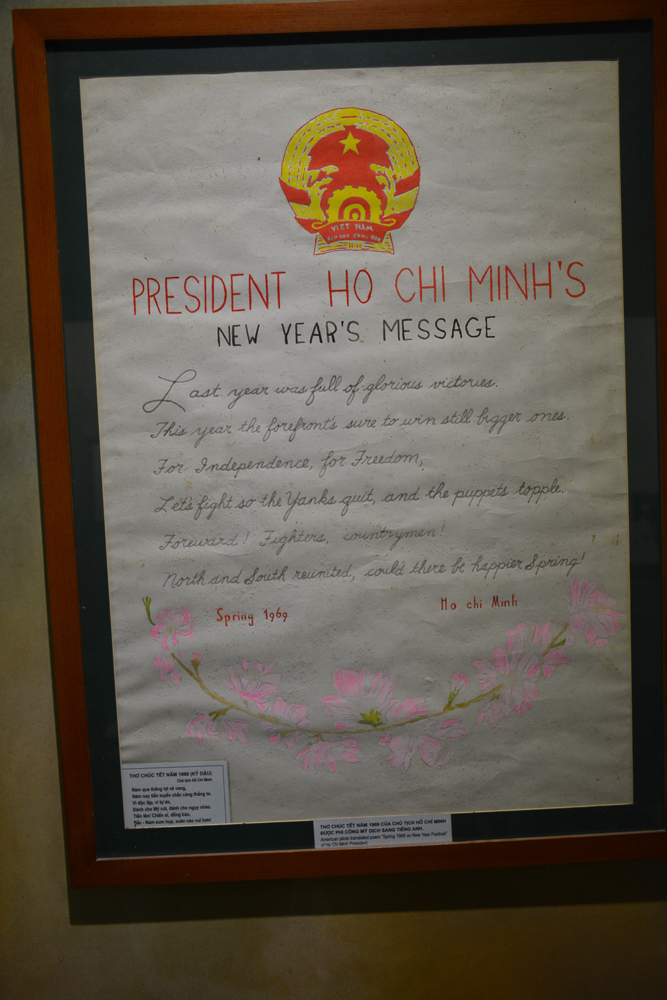 VIET NAM
PRESIDENT HO CHI MINH'S
NEW YEAR'S MESSAGE
Last year was full of glorious victories.
This year the forefront's sure to win still bigger ones.
For Independence, for Freedom,
Let's fight so the Yanks quit, and the puppets topple.
Forward! Fighters, countrymen!
North and South reunited, could there be happier Spring!
Spring 1969
Ho chi Minh
THƠ CHÚC TẾT NĂM 1969 (KỶ DẬU)
Chủ tịch Hồ Chí Minh
Năm qua thắng lợi vẻ vang,
Năm nay tiền tuyến chắc càng thắng to.
Vì độc lập, vì tự do,
Đánh cho Mỹ cút, đánh cho ngụy nhào.
Tiến lên! Chiến sĩ, đồng bào,
Bắc - Nam sum họp, xuân nào vui hơn!
THƠ CHÚC TẾT NĂM 1969 CỦA CHỦ TỊCH HỒ CHÍ MINH
ĐƯỢC PHI CÔNG MỸ DỊCH SANG TIẾNG ANH.
American pilots translated poem "Spring 1969 on New Year Festival"
of Ho Chi Minh President